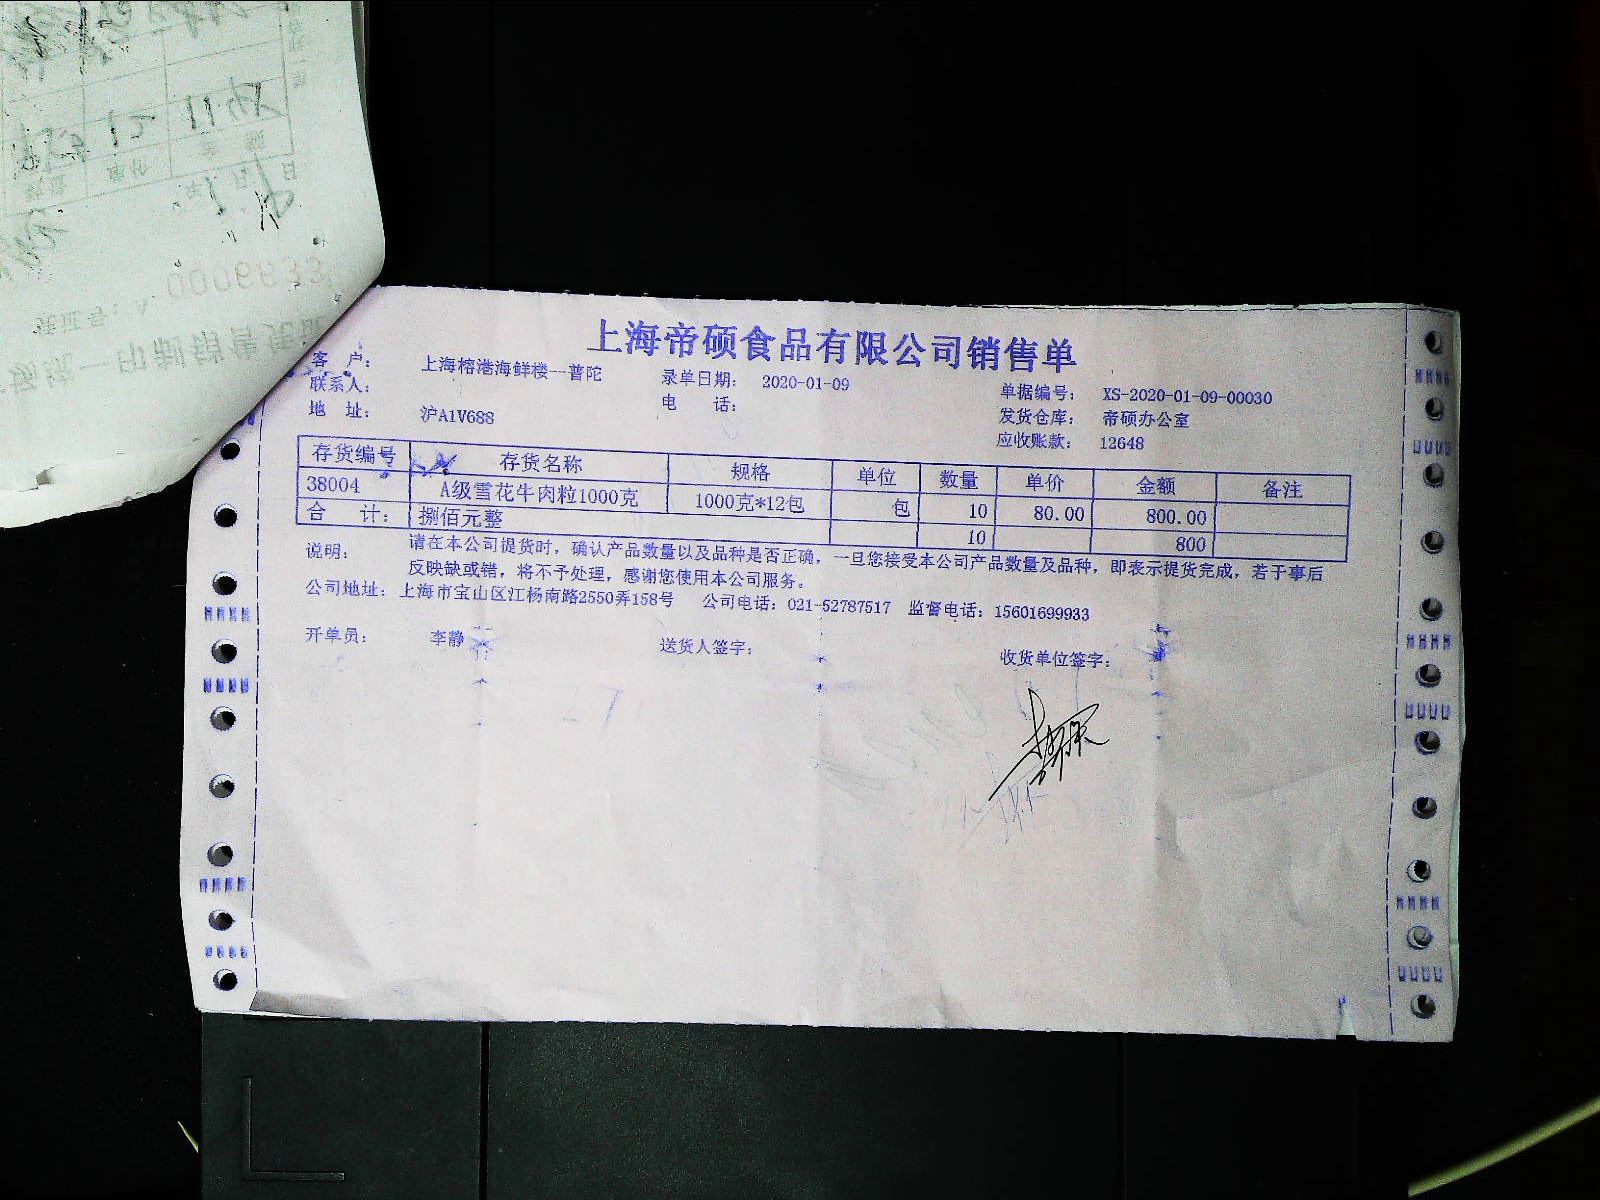 上海帝硕食品有限公司销售单
客 户： 上海榕港海鲜楼--普陀 录单日期： 2020-01-09 单据编号： XS-2020-01-09-00030
联系人： 电 话： 发货仓库： 帝硕办公室
地 址： 沪A1V688 应收账款： 12648
存货编号 存货名称 规格 单位 数量 单价 金额 备注
38004 A级雪花牛肉粒1000克 1000克*12包 包 10 80.00 800.00
合 计： 捌佰元整 10 800
说明： 请在本公司提货时，确认产品数量以及品种是否正确，一旦您接受本公司产品数量及品种，即表示提货完成，若于事后
反映缺或错，将不予处理，感谢您使用本公司服务。
公司地址：上海市宝山区江杨南路2550弄158号 公司电话：021-52787517 监督电话：15601699933
开单员： 李静 送货人签字： 收货单位签字：